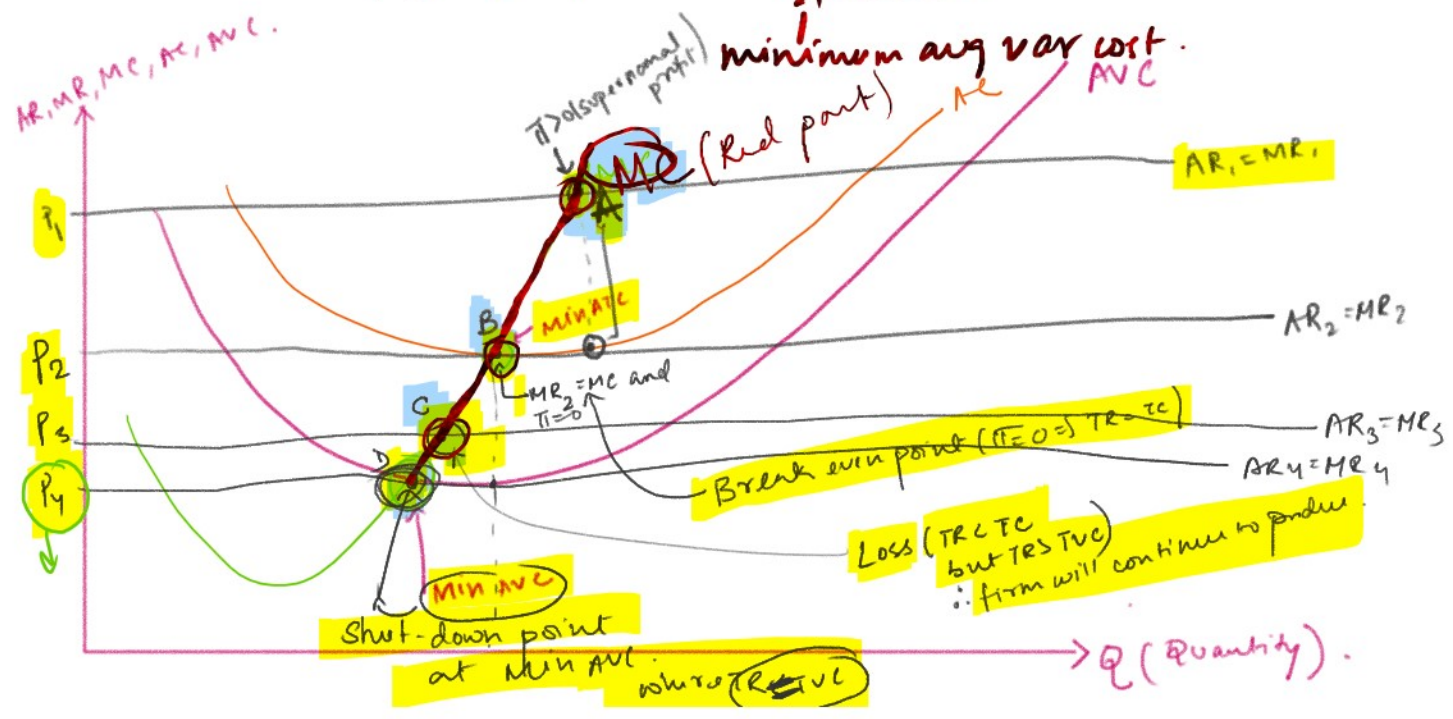 minimum avg var cost.
AR, MR, MC, AC, AVC.
π>0(supernomal
profit)
MC (Red part)
AC
AVC
P1
A
AR1 = MR1
B
Min ATC
P2
AR2 = MR2
MR2 = MC and
π=0
C
P3
AR3 = MR3
D
P4
AR4 = MR4
Break even point (π=0 => TR=TC)
Loss (TR<TC
but TR>TVC)
∴ firm will continue to produce.
Min AVC
Shut-down point
at Min AVC.
where TR=TVC
Q (Quantity).